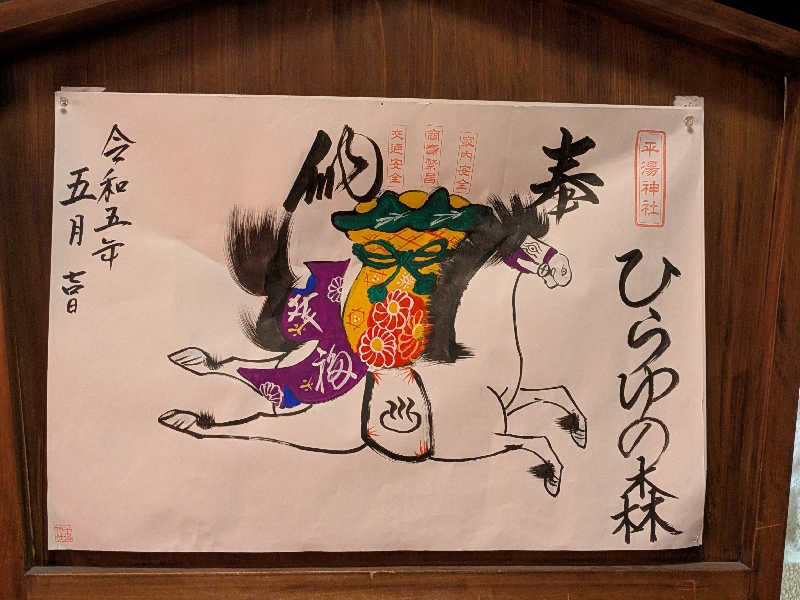 平湯神社
ひらゆの森
奉納
家内安全
商売繁昌
交通安全
令和五年
五月吉日
福